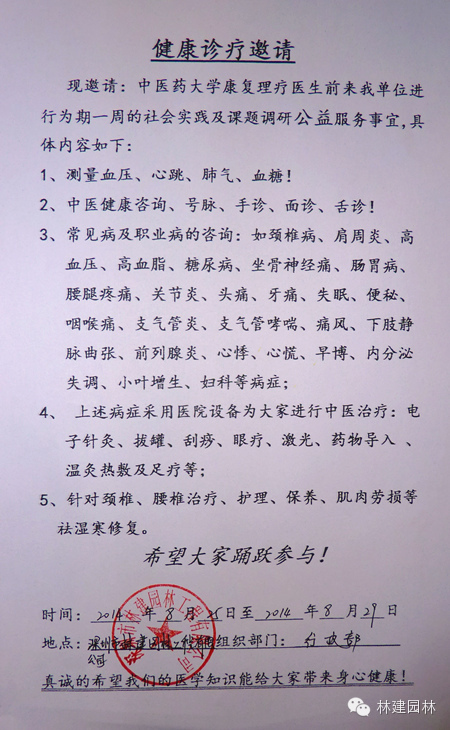 健康诊疗邀请
现邀请：中医药大学康复理疗医生前来我单位进
行为期一周的社会实践及课题调研公益服务事宜,具
体内容如下：
1、测量血压、心跳、肺气、血糖！
2、中医健康咨询、号脉、手诊、面诊、舌诊！
3、常见病及职业病的咨询：如颈椎病、肩周炎、高
血压、高血脂、糖尿病、坐骨神经痛、肠胃病、
腰腿疼痛、关节炎、头痛、牙痛、失眠、便秘、
咽喉痛、支气管炎、支气管哮喘、痛风、下肢静
脉曲张、前列腺炎、心悸、心慌、早博、内分泌
失调、小叶增生、妇科等病症；
4、 上述病症采用医院设备为大家进行中医治疗：电
子针灸、拔罐、刮痧、眼疗、激光、药物导入 、
温灸热敷及足疗等；
5、针对颈椎、腰椎治疗、护理、保养、肌肉劳损等
祛湿寒修复。
希望大家踊跃参与！
时间：2014 年 8 月 25日至 2014 年 8 月 29 日
地点： 组织部门： 行政部
公司
真诚的希望我们的医学知识能给大家带来身心健康！
林建园林